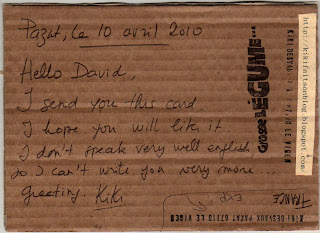 Pazat, le 10 avril 2010
Hello David,
I send you this card
I hope you will like it
I don't speak very well english
so I can't write you very more...
greeting. Kiki
GROSSE LÉGUME...
http://kikifaitsonblog.blogspot.com/
KIKI DESVAUX PAZAT 87210 LE VIGEN
FRANCE